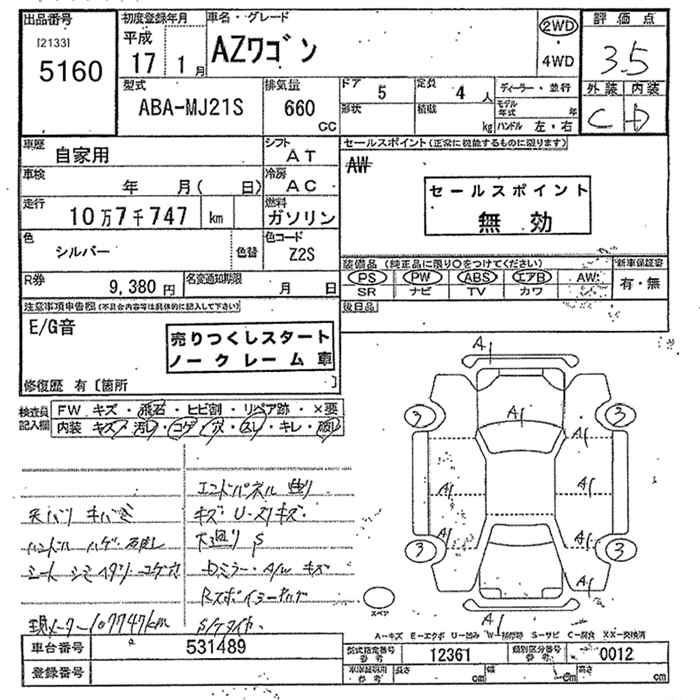 出品番号
[2133]
5160
初度登録年月
平成
17年 1月
車名・グレード
AZワゴン
2WD
4WD
評価点
3.5
外装 内装
C D
型式
ABA-MJ21S
排気量
660
CC
ドア
5
形状
定員
4人
積載
kg
ディーラー・並行
モデル年式 年
ハンドル 左・右
車歴
自家用
シフト
AT
車検
年 月( 日)
冷房
AC
走行
10万7千747 km
燃料
ガソリン
色
シルバー
色替
色コード
Z2S
R券
9,380円
名変通知期限
月 日
セールスポイント(正常に機能するものに限ります)
AW
セールスポイント
無効
装備品 (純正品に限り○をつけてください)
PS PW ABS エアB AW
SR ナビ TV カワ
新車保証書
有・無
後日品
注意事項申告欄(不具合内容等は具体的に記入して下さい)
E/G音
売りつくしスタート
ノークレーム車
修復歴 有〔箇所 〕
検査員記入欄
FW キズ・飛石・ヒビ割・リペア跡・×要
内装 キズ・汚レ・コゲ・穴・スレ・キレ・破レ
エンドパネル 曲り
天バリ キバミ
キズ U・スリキズ
ハンドル ハゲ
下廻り S
シート シミ ヘタリ コゲ穴
Dミラー・A/W キズ
現メーター 107747km
A1
A1
3
3
A1
A1
A1
A1
3
3
A1
スペア
A-キズ E-エクボ U-凹み W-補修跡 S-サビ C-腐食 XX-交換済
車台番号
531489
型式指定番号
参考
12361
類別区分番号
参考
0012
登録番号
車庫証明用
参考
長さ cm
幅 cm
高さ cm